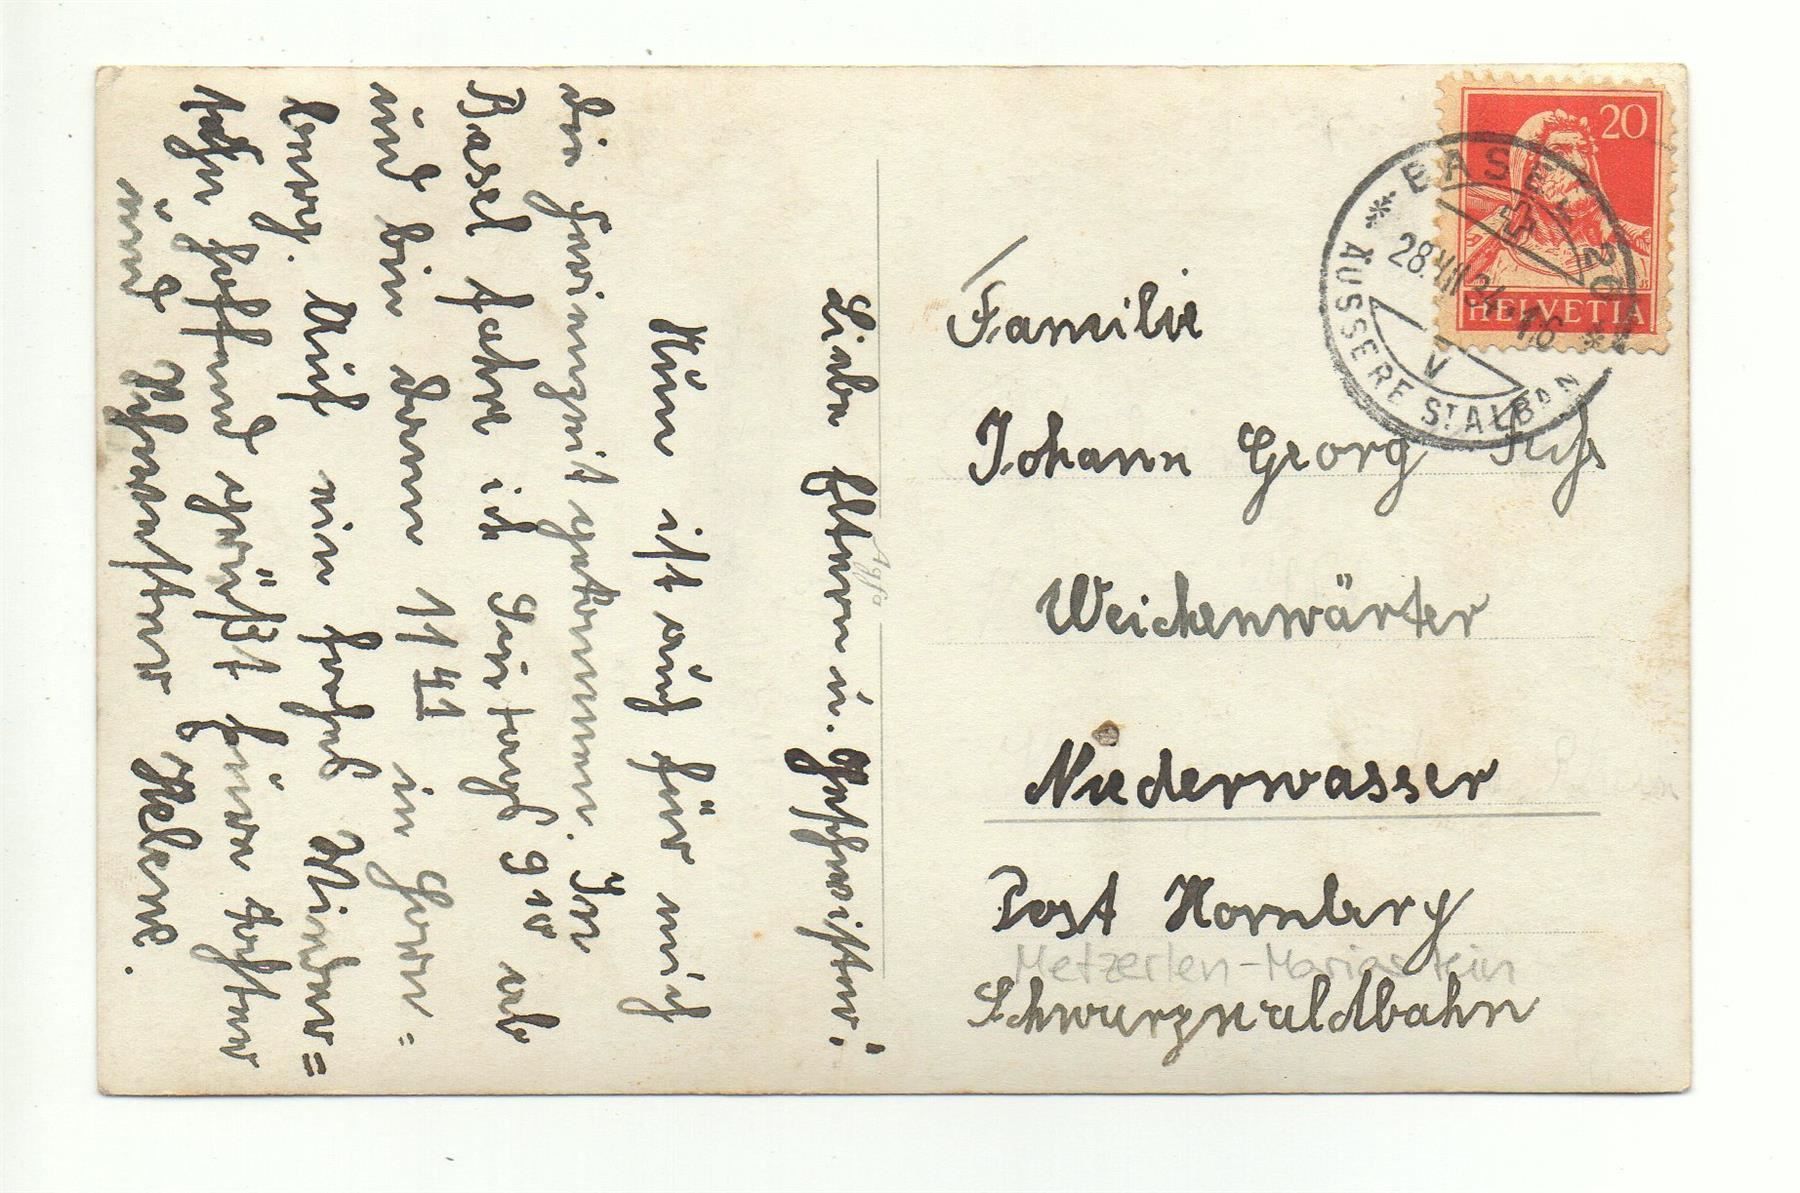 Liebe Eltern u. Geschwister!
Nun ist auch für mich
die Ferienzeit gekommen. In
Basel fahre ich Freitags 9 10 ab
und bin dann 11 41 in Horn=
berg. Auf ein frohes Wieder=
sehn hoffend grüßt Eure Tochter
und Schwester Helene.
Agfa
Familie
Johann Georg
Weichenwärter
Niederwasser
Post Hornberg
Metzerlen-Mariastein
Schwarzwaldbahn
20
HELVETIA
BASEL 20
28.VII.34-16
V
AUSSERE ST ALBAN